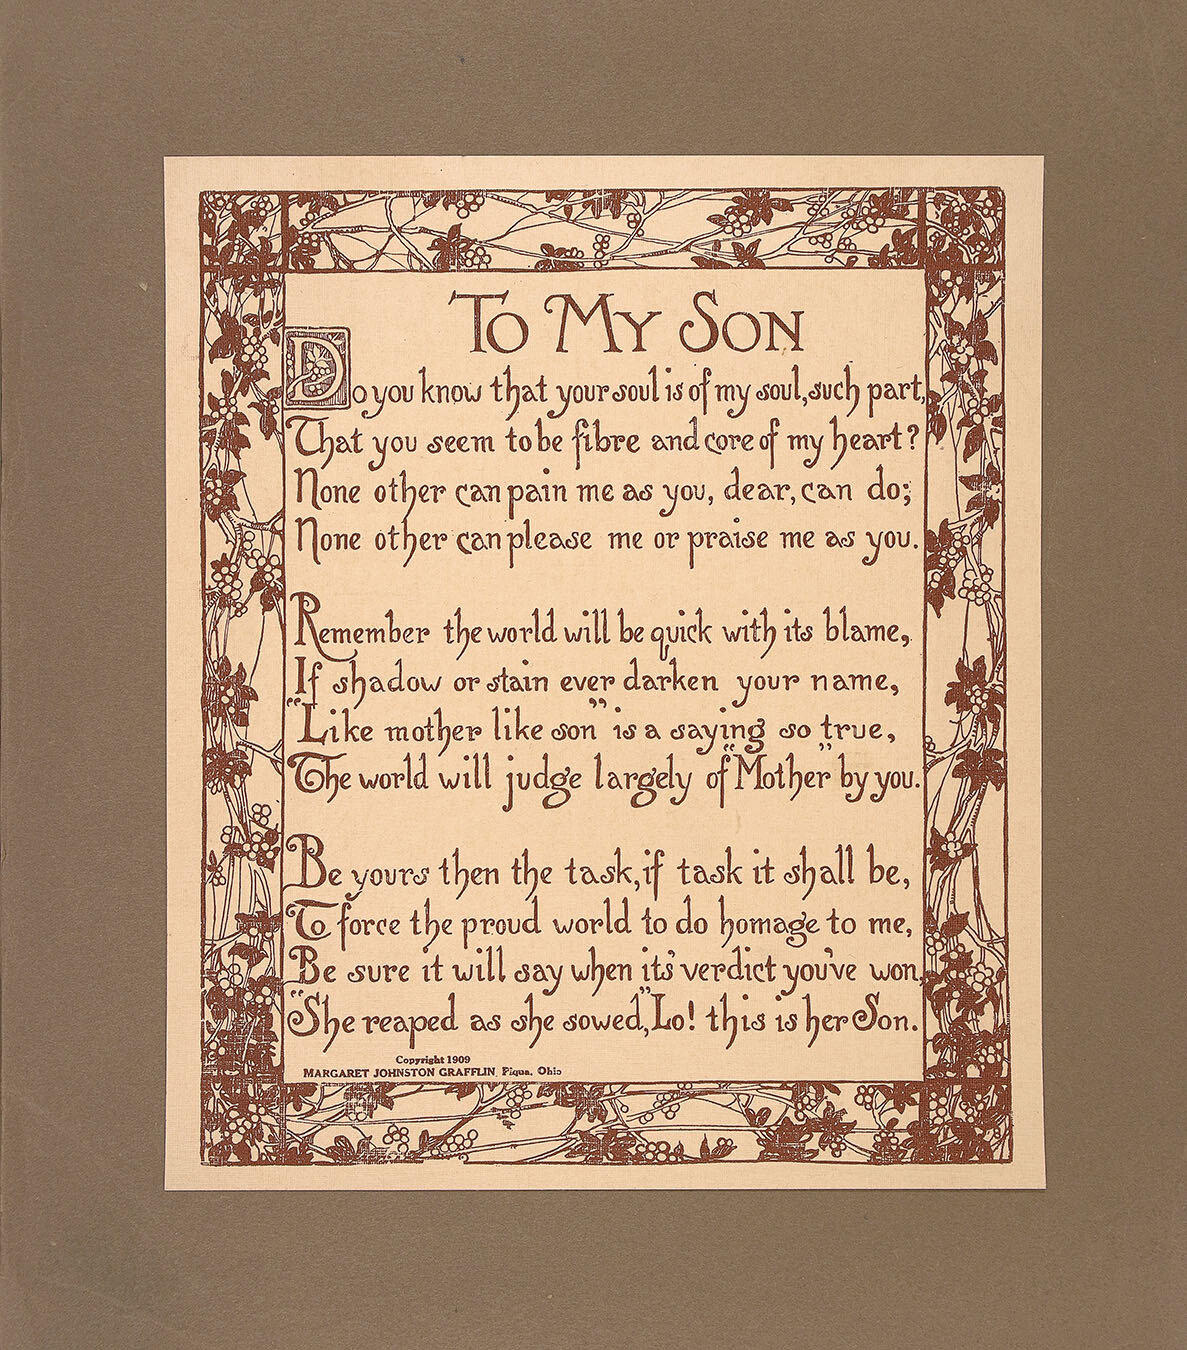 To My Son
Do you know that your soul is of my soul, such part,
That you seem to be fibre and core of my heart?
None other can pain me as you, dear, can do;
None other can please me or praise me as you.
Remember the world will be quick with its blame,
If shadow or stain ever darken your name,
"Like mother like son" is a saying so true,
The world will judge largely of "Mother" by you.
Be yours then the task, if task it shall be,
To force the proud world to do homage to me,
Be sure it will say when its' verdict you've won,
"She reaped as she sowed," Lo! this is her Son.
Copyright 1909
MARGARET JOHNSTON GRAFFLIN, Piqua, Ohio